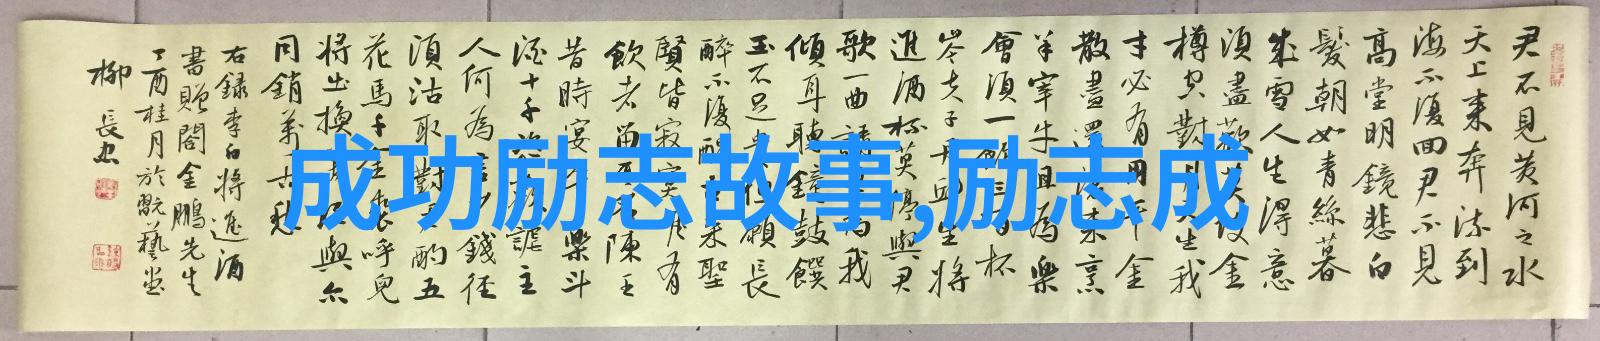 君不見黄河之水
天上来奔流到
海不復回君不見
高堂明鏡悲白
髮朝如青絲暮
成雪人生得意
須盡歡莫使金
樽空對月天生我
才必有用千金
散盡還復来烹
羊宰牛且為樂
會須一飲三百杯
岑夫子丹丘生將
進酒杯莫停與君
歌一曲請君為我
傾耳聽鐘鼓饌
玉不足貴但願長
醉不復醒古来聖
賢皆寂寞惟有
飲者留其名陳王
昔時宴平樂斗
酒十千恣歡謔主
人何為言少錢径
須沽取對君酌五
花馬千金裘呼兒
將出換美酒與尔
同銷萬古愁
右録李白將進酒
書贈閣金鵬先生
丁酉桂月於翫藝堂
柳長忠
成功励志故事,励志成